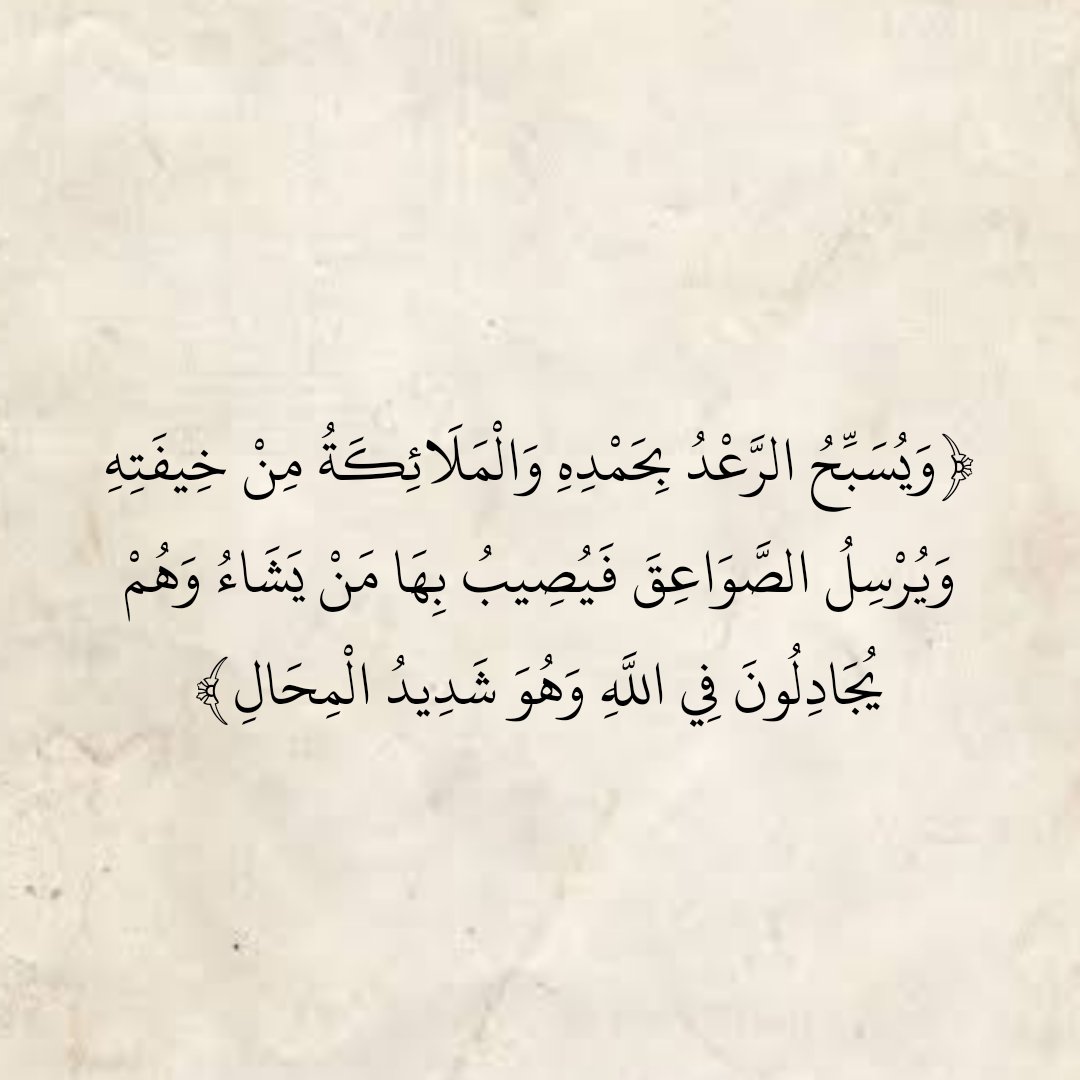 ﴿وَيُسَبِّحُ الرَّعْدُ بِحَمْدِهِ وَالْمَلَائِكَةُ مِنْ خِيفَتِهِ
وَيُرْسِلُ الصَّوَاعِقَ فَيُصِيبُ بِهَا مَنْ يَشَاءُ وَهُمْ
يُجَادِلُونَ فِي اللَّهِ وَهُوَ شَدِيدُ الْمِحَالِ﴾